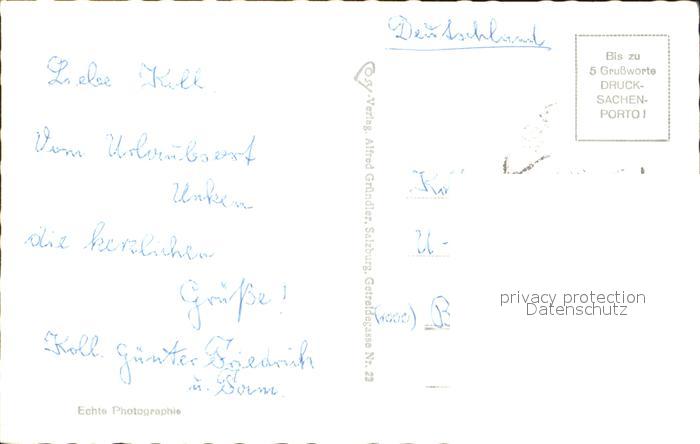 Liebe Koll.
Vom Urlaubsort
Unken
die herzlichen
Grüße!
Koll. Günter Friedrich
u. Fam.
Echte Photographie
Cosy-Verlag, Alfred Gründler, Salzburg, Getreidegasse Nr. 22
Deutschland
Bis zu
5 Grußworte
DRUCK-
SACHEN-
PORTO!
U-
B
privacy protection
Datenschutz